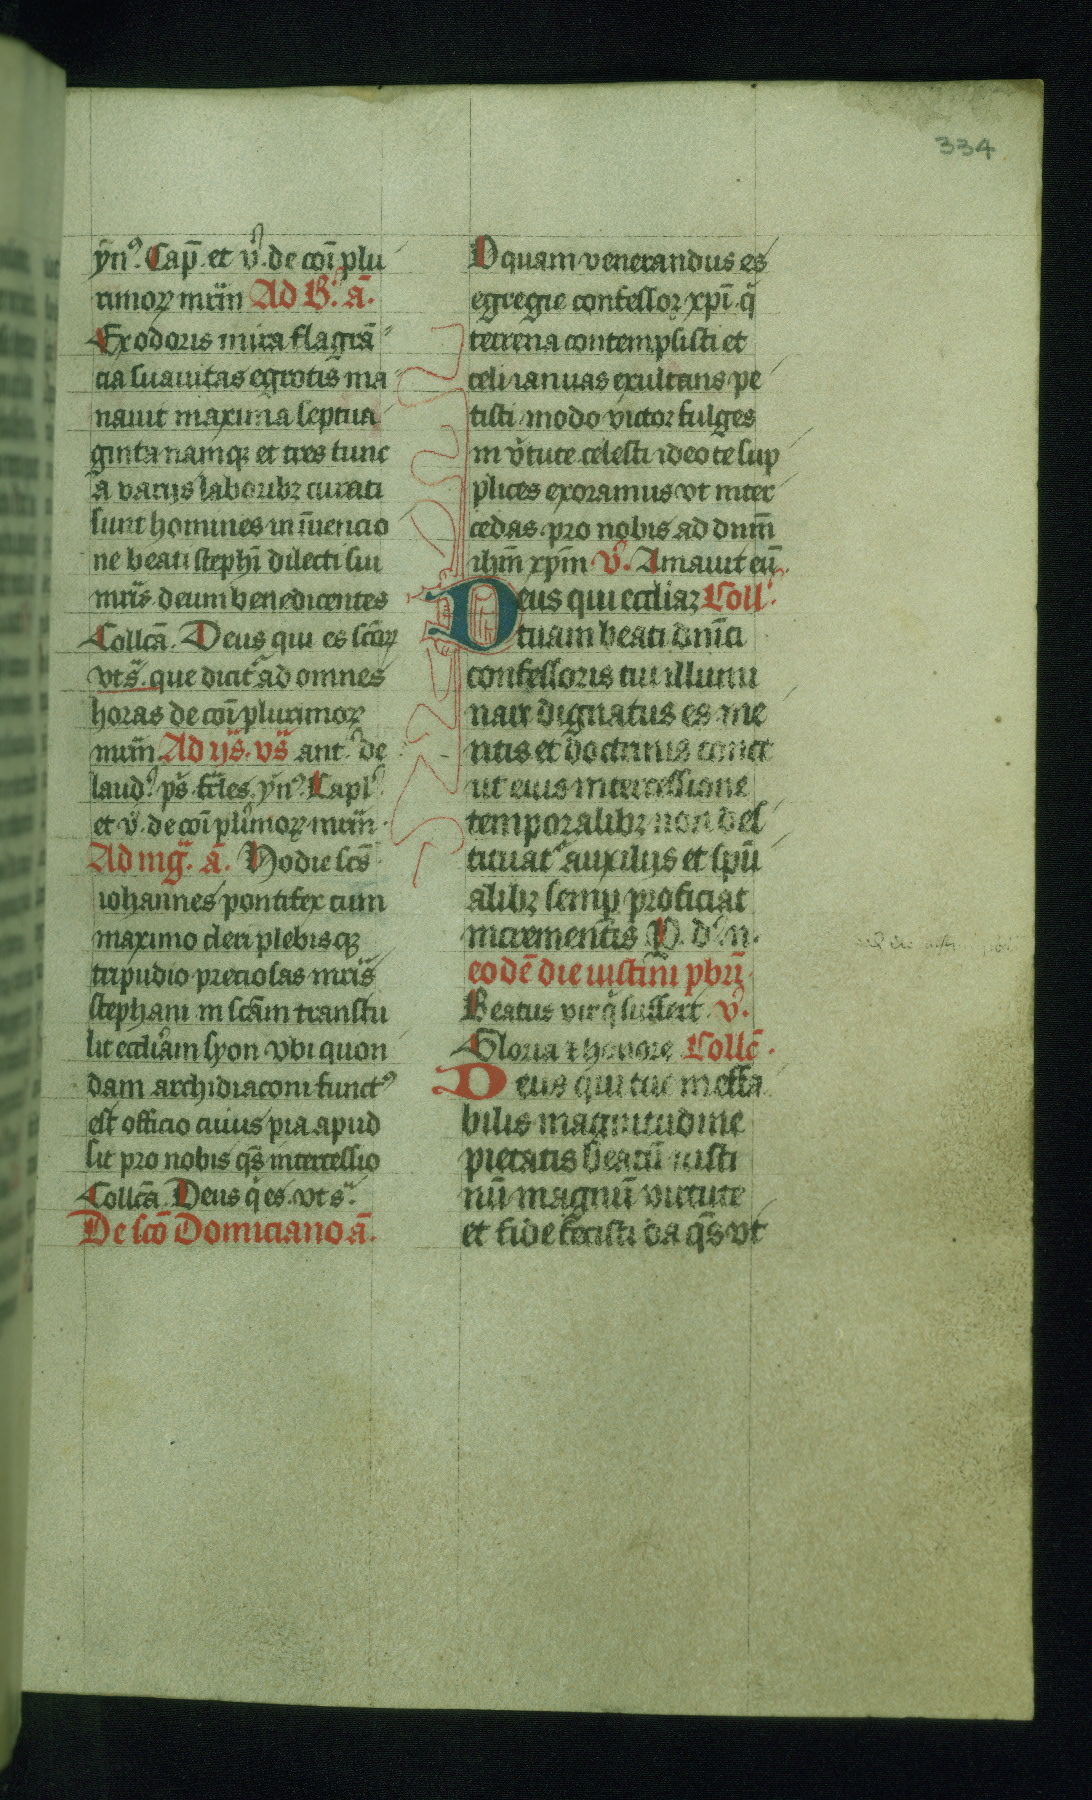 334
ẏn⁹. Cap̄. et v̉. de coī plu
rimoꝝ mr̄m Ad B̉. ā.
Ex odoris mira flagrā
cia suauitas egrotis ma
nauit maxima septua
ginta namqꝫ et tres tunc
a varijs laboribꝫ curati
sunt homines in īuencio
ne beati steph̄i dilecti sui
mr̄is deum benedicentes
Collcā. Deus qui es sc̄oꝝ
vts̄. que dicit᷑ ad omnes
horas de coī plurimoꝝ
mr̄m. Ad ijs̄. vs̄ ant̉. de
laud⁹. ps̄. fr̄les. ẏn⁹. Capl̉.
et v̉. de coī pl̉imoꝝ mr̄m.
Ad mḡ. ā. Hodie sc̄s
iohannes pontifex cum
maximo cleri plebisqꝫ
tripudio preciosas mr̄is
stephani in sc̄am transtu
lit eccl̉iam syon vbi quon
dam archidiaconi funct⁹
est officio cuius pia apud
sit pro nobis qs̄ intercessio
Collcā. Deus q̄ es. vt s̄.
De sc̄o Domiciano ā.
O quam venerandus es
egregie confessor xp̄i q̄
terrena contempsisti et
celi ianuas exultans pe
tisti modo victor fulges
in v̉tute celesti ideo te sup
plices exoramus vt inter
cedas pro nobis ad dnm̄
ihm̄ xp̄m v̉. Amauit eū.
Deus qui eccl̉iaꝫ Coll̉.
tuam beati dn̄ici
confessoris tui illumi
nare dignatus es me
ritis et doctrinis concꝫ
ut eius intercessione
temporalibꝫ non des
tituat᷑ auxilijs et spū
alibꝫ semꝑ proficiat
incrementis P. d⁹. n.
eodē die iustini pbr̄i
Beatus vir q̄ suffert v̉.
Gloria ⁊ honore Collc̄.
Deus qui tue ineffa
bilis magnitudine
pietatis beatū iusti
nū magnū virtute
et fide fecisti da qs̄ vt